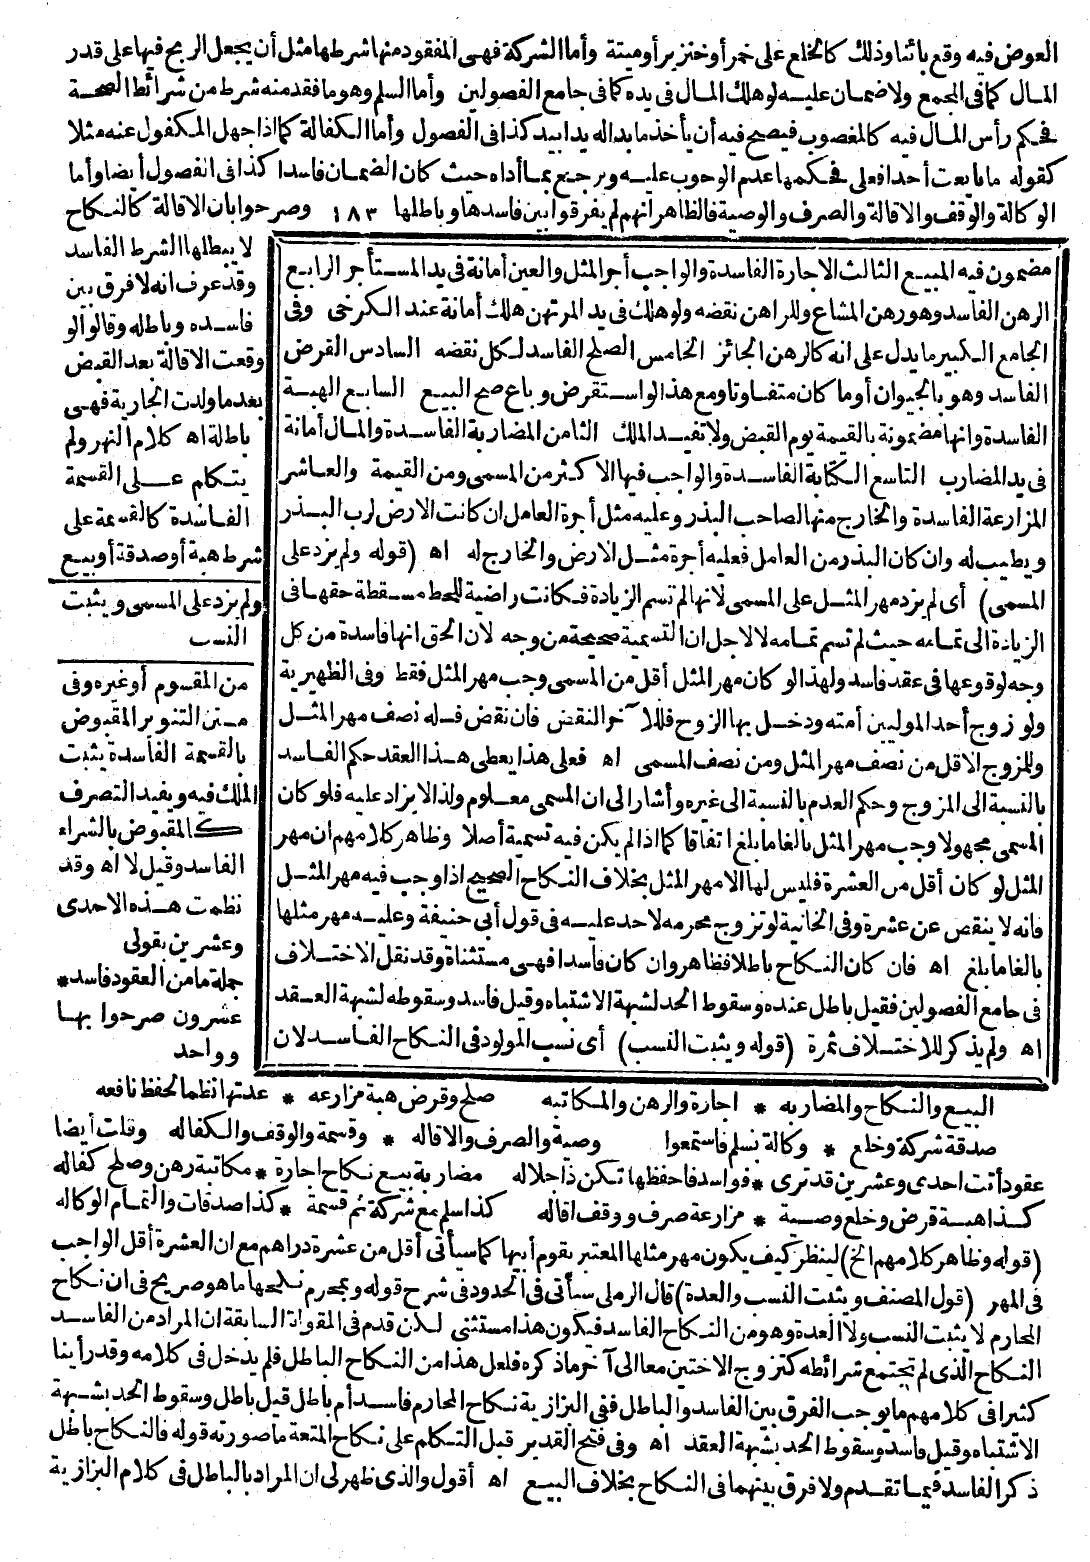 العوض فيه وقع بائنا وذلك كالخلع على خمر أو خنزير أو ميتة وأما الشركة فهى المفقود منها شرطها مثل أن يجعل الربح فيها على قدر
المال كما فى المجمع ولا ضمان عليه لو هلك المال فى يده كما فى جامع الفصولين وأما السلم وهو ما فقد منه شرط من شرائط الصحة
فحكم رأس المال فيه كالمغصوب فيصح فيه أن يأخذ ما بدا له يدا بيد كذا فى الفصول وأما الكفالة كما اذا جهل المكفول عنه مثلا
كقوله ما بايعت أحدا فعلى فحكمها عدم الوجوب عليه ويرجع بما أداه حيث كان الضمان فاسدا كذا فى الفصول أيضا وأما
الوكالة والوقف والاقالة والصرف والوصية فالظاهر انهم لم يفرقوا بين فاسدها وباطلها ١٨٣ وصرحوا بان الاقالة كالنكاح
مضمون فيه المبيع الثالث الاجارة الفاسدة والواجب أجر المثل والعين أمانة فى يد المستأجر الرابع
الرهن الفاسد وهو رهن المشاع وللراهن نقضه ولو هلك فى يد المرتهن هلك أمانة عند الكرخى وفى
الجامع الكبير ما يدل على انه كالرهن الجائز الخامس الصلح الفاسد لكل نقضه السادس القرض
الفاسد وهو بالحيوان أو ما كان متفاوتا ومع هذا لو استقرض وباع صح البيع السابع الهبة
الفاسدة وانها مضمونة بالقيمة يوم القبض ولا تفيد الملك الثامن المضاربة الفاسدة والمال أمانة
فى يد المضارب التاسع الكتابة الفاسدة والواجب فيها الاكثر من المسمى ومن القيمة والعاشر
المزارعة الفاسدة والخارج منها لصاحب البذر وعليه مثل أجرة العامل ان كانت الارض لرب البذر
ويطيب له وان كان البذر من العامل فعليه أجرة مثل الارض والخارج له اه (قوله ولم يزد على
المسمى) أى لم يزد مهر المثل على المسمى لانها لم تسم الزيادة فكانت راضية للحط مسقطة حقها فى
الزيادة الى تمامه حيث لم تسم تمامه لا لاجل ان التسمية صحيحة من وجه لان الحق انها فاسدة من كل
وجه لوقوعها فى عقد فاسد ولهذا لو كان مهر المثل أقل من المسمى وجب مهر المثل فقط وفى الظهيرية
ولو زوج أحد الموليين أمته ودخل بها الزوج فللآخر النقض فان نقض فله نصف مهر المثل
وللمزوج الاقل من نصف مهر المثل ومن نصف المسمى اه فعلى هذا يعطى هذا العقد حكم الفاسد
بالنسبة الى المزوج وحكم العدم بالنسبة الى غيره وأشار الى ان المسمى معلوم ولذا لا يزاد عليه فلو كان
المسمى مجهولا وجب مهر المثل بالغا ما بلغ اتفاقا كما اذا لم يكن فيه تسمية أصلا وظاهر كلامهم ان مهر
المثل لو كان أقل من العشرة فليس لها الا مهر المثل بخلاف النكاح الصحيح اذا وجب فيه مهر المثل
فانه لا ينقص عن عشرة وفى الخانية لو تزوج محرمه لا حد عليه فى قول أبى حنيفة وعليه مهر مثلها
بالغا ما بلغ اه فان كان النكاح باطلا فظاهر وان كان فاسدا فهى مستثناة وقد نقل الاختلاف
فى جامع الفصولين فقيل باطل عنده وسقوط الحد لشبهة الاشتباه وقيل فاسد وسقوطه لشبهة العقد
اه ولم يذكر للاختلاف ثمرة (قوله ويثبت النسب) أى نسب المولود فى النكاح الفاسد لان
لا يبطلها الشرط الفاسد
وقد عرف انه لا فرق بين
فاسده وباطله وقالوا لو
وقعت الاقالة بعد القبض
بعد ما ولدت الجارية فهى
باطلة اه كلام النهر ولم
يتكلم على القسمة
الفاسدة كالقسمة على
شرط هبة أو صدقة أو بيع
ولم يزد على المسمى ويثبت
النسب
من المقسوم أو غيره وفى
متن التنوير المقبوض
بالقسمة الفاسدة يثبت
الملك فيه ويفيد التصرف
كالمقبوض بالشراء
الفاسد وقيل لا اه وقد
نظمت هذه الاحدى
وعشرين بقولى
جملة ما من العقود فاسد *
عشرون صرحوا بها
وواحد
البيع والنكاح والمضاربه * اجارة والرهن والمكاتبه صلح وقرض هبة مزارعه * عدتها نظما لحفظ نافعه
صدقة شركة وخلع * وكالة تسلم فاستمعوا وصية والصرف والاقاله * وقسمة والوقف والكفاله وقلت أيضا
عقود أتت احدى وعشرين قد ترى * فواسد فاحفظها تكن ذا جلاله مضاربة بيع نكاح اجارة * مكاتبة رهن وصلح كفاله
كذا هبة قرض وخلع وصية * مزارعة صرف ووقف اقاله كذا سلم مع شركة ثم قسمة * كذا صدقات والتمام الوكاله
(قوله وظاهر كلامهم الخ) لينظر كيف يكون مهر مثلها المعتبر بقوم أبيها كما سيأتى أقل من عشرة دراهم مع ان العشرة أقل الواجب
فى المهر (قول المصنف ويثبت النسب والعدة) قال الرملى سيأتى فى الحدود فى شرح قوله وبمحرم نكحها ما هو صريح فى ان نكاح
المحارم لا يثبت النسب ولا العدة وهو من النكاح الفاسد فيكون هذا مستثنى لكن قدم فى المقولة السابقة ان المراد من الفاسد
النكاح الذى لم تجتمع شرائطه كتزوج الاختين معا الى آخر ما ذكره فلعل هذا من النكاح الباطل فلم يدخل فى كلامه وقد رأينا
كثيرا فى كلامهم ما يوجب الفرق بين الفاسد والباطل ففى البزازية نكاح المحارم فاسد أم باطل قيل باطل وسقوط الحد بشبهة
الاشتباه وقيل فاسد وسقوط الحد بشبهة العقد اه وفى فتح القدير قبل التكلم على نكاح المتعة ما صورته قوله فالنكاح باطل
ذكر الفاسد فيما تقدم ولا فرق بينهما فى النكاح بخلاف البيع اه أقول والذى ظهر لى ان المراد بالباطل فى كلام البزازية